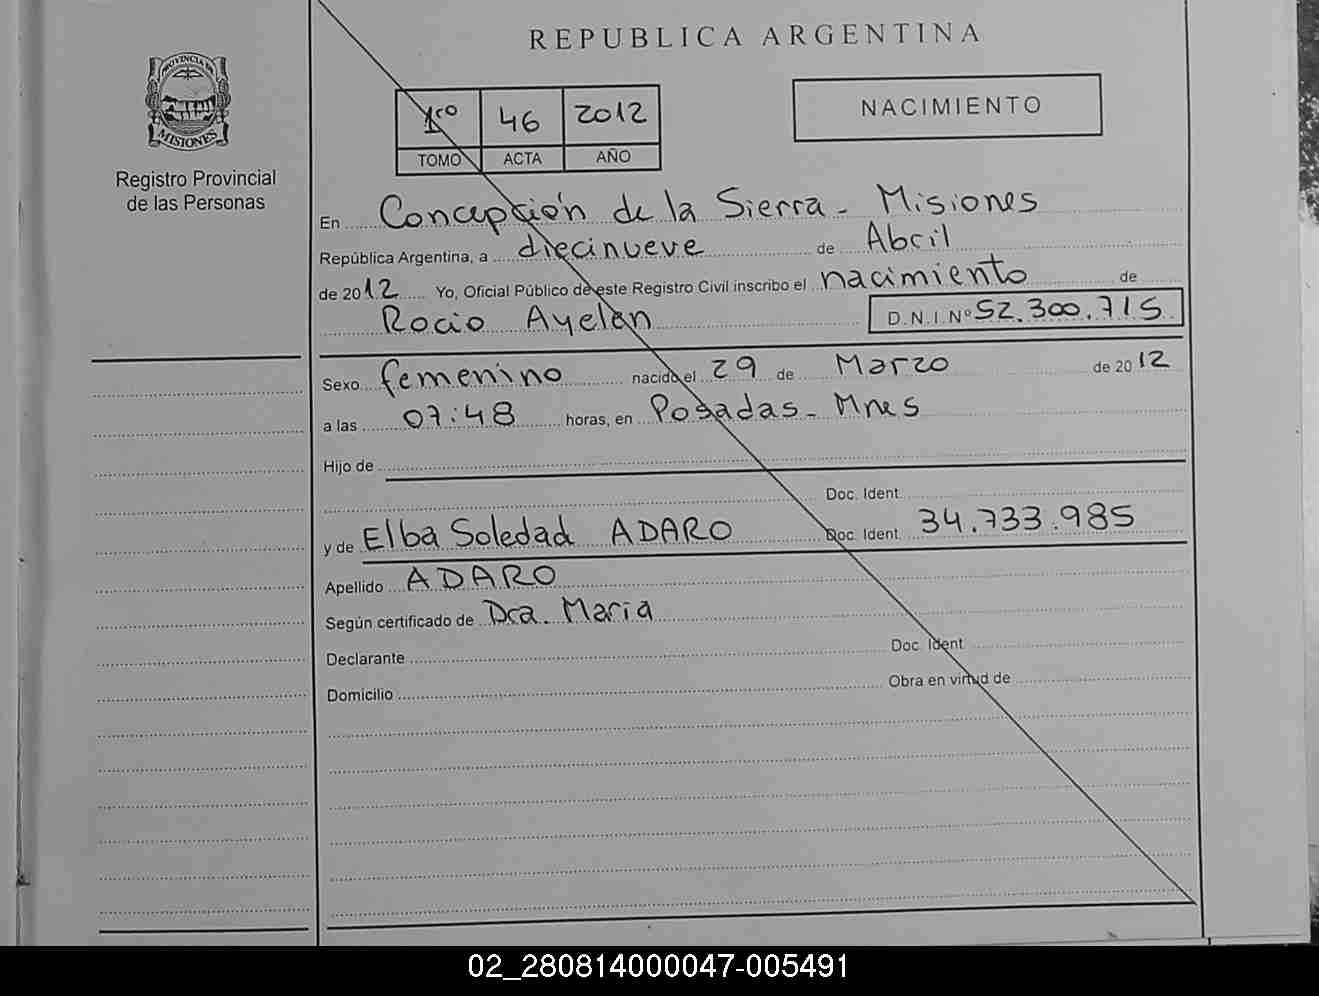 REPUBLICA ARGENTINA
PROVINCIA DE
MISIONES
Registro Provincial
de las Personas
1ro 46 2012
TOMO ACTA AÑO
NACIMIENTO
En Concepción de la Sierra - Misiones
República Argentina, a diecinueve de Abril
de 2012 Yo, Oficial Público de este Registro Civil inscribo el nacimiento de
Rocio Ayelén D.N.I.Nº 52.300.715
Sexo femenino nacido el 29 de Marzo de 2012
a las 07:48 horas, en Posadas - Mnes
Hijo de
Doc. Ident.
y de Elba Soledad ADARO Doc. Ident. 34.733.985
Apellido ADARO
Según certificado de Dra. Maria
Declarante Doc. Ident.
Domicilio Obra en virtud de
02_280814000047-005491